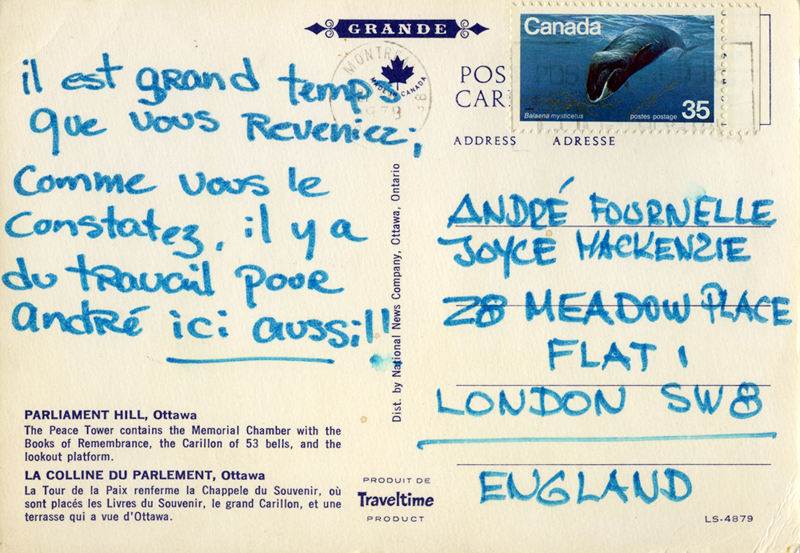 GRANDE
il est grand temps
que vous reveniez;
Comme vous le
Constatez, il y a
du travail pour
andré ici aussi!!
PARLIAMENT HILL, Ottawa
The Peace Tower contains the Memorial Chamber with the
Books of Remembrance, the Carillon of 53 bells, and the
lookout platform.
LA COLLINE DU PARLEMENT, Ottawa
La Tour de la Paix renferme la Chappele du Souvenir, où
sont placés les Livres du Souvenir, le grand Carillon, et une
terrasse qui a vue d'Ottawa.
MONTRE
MADE IN CANADA
1979
Dist. by National News Company, Ottawa, Ontario
PRODUIT DE
Traveltime
PRODUCT
POS
CAR
Canada
35
Balaena mysticetus
postes-postage
ADDRESS ADRESSE
ANDRÉ FOURNELLE
JOYCE MACKENZIE
28 MEADOW PLACE
FLAT 1
LONDON SW8
ENGLAND
LS-4879